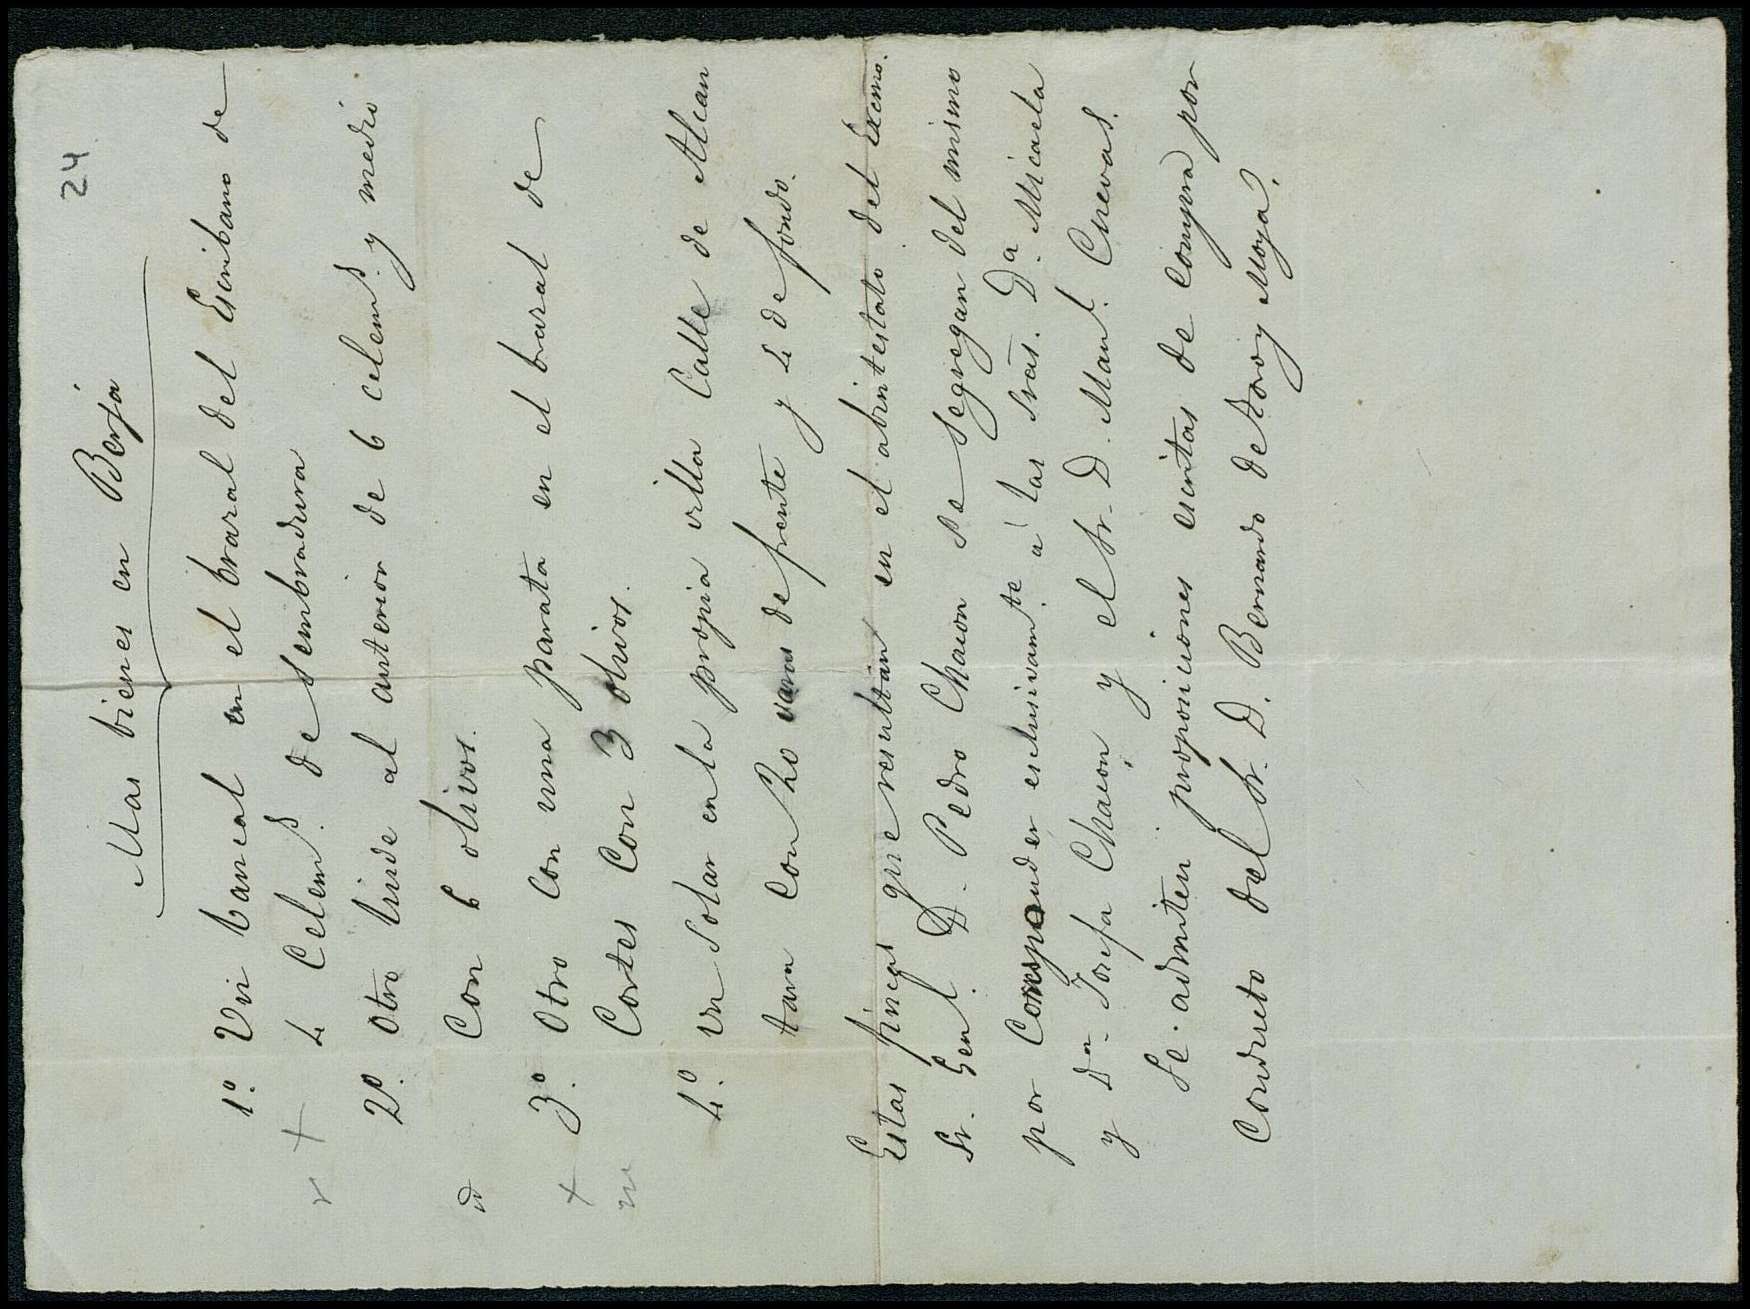 24
Mas bienes en Berja
1º. Un bancal en el brazal del Escribano de
4 Celems. de sembradura
2º. Otro linde al anterior de 6 celems. y medio
Con 6 olivos.
3º. Otro Con una parata en el brazal de
Cortes Con 3 olivos.
4º. Un Solar en la propia villa Calle de Alcan
tara Con 20 varas de frente y 4 de fondo.
Estas fincas que resultan en el abintestato del Excmo.
Sr. Genl. D. Pedro Chacon se segregan del mismo
por Corresponder esclusivamte. á las Sras. Dª. Micaela
y Dª. Josefa Chacon y el Sr. D. Manl. Cuevas.
Se admiten proposiciones escritas de compra por
Conducto del Sr. D. Bernardo de Moya.